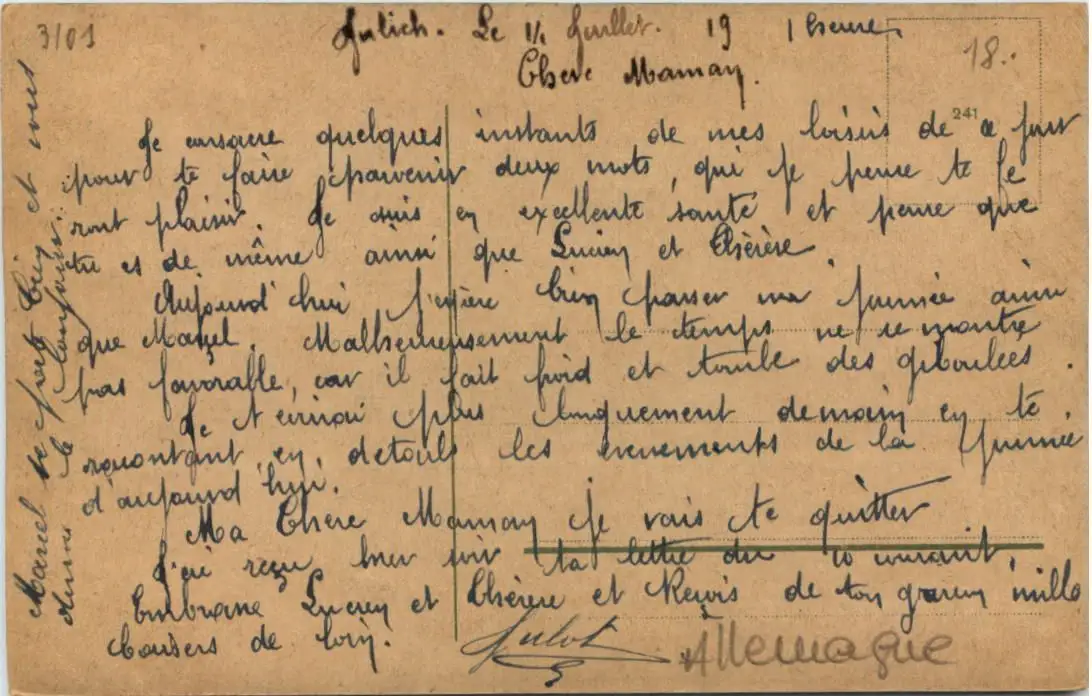 3/01
Julich. Le 1/ Juillet. 19 1 heure
18.
Chère Maman.
241
Je consacre quelques instants de mes loisirs de ce jour
pour te faire parvenir deux mots, qui je pense te fe
ront plaisir. Je suis en excellente santé et pense que
tu es de même ainsi que Lucien et Thérère.
Aujourd'hui j'espère bien passer ma journée ainsi
que Marcel. Malheureusement le temps ne se montre
pas favorable, car il fait froid et tombe des giboulées.
Je t'écrirai plus longuement demain en te
racontant en détails les évenements de la journée
d'aujourd'hui.
Ma Chère Maman je vais te quitter
J'ai reçu hier soir ta lettre du 10 courant.
Embrasse Lucien et Thérère et Reçois de ton garçon mille
baisers de loin.
Julot
Allemagne
Marcel se porte bien et vous
donne le bonjour.